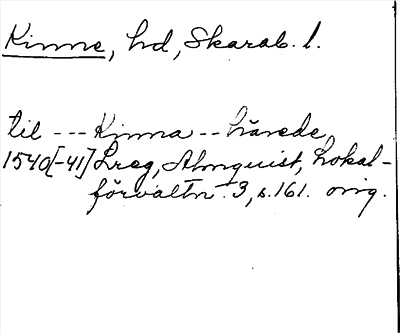 Kinne, hd, Skarab. l.
til --- Kinna -- härede
1540[-41] Lreg, Almquist, Lokal-
förvaltn. 3, s. 161. orig.